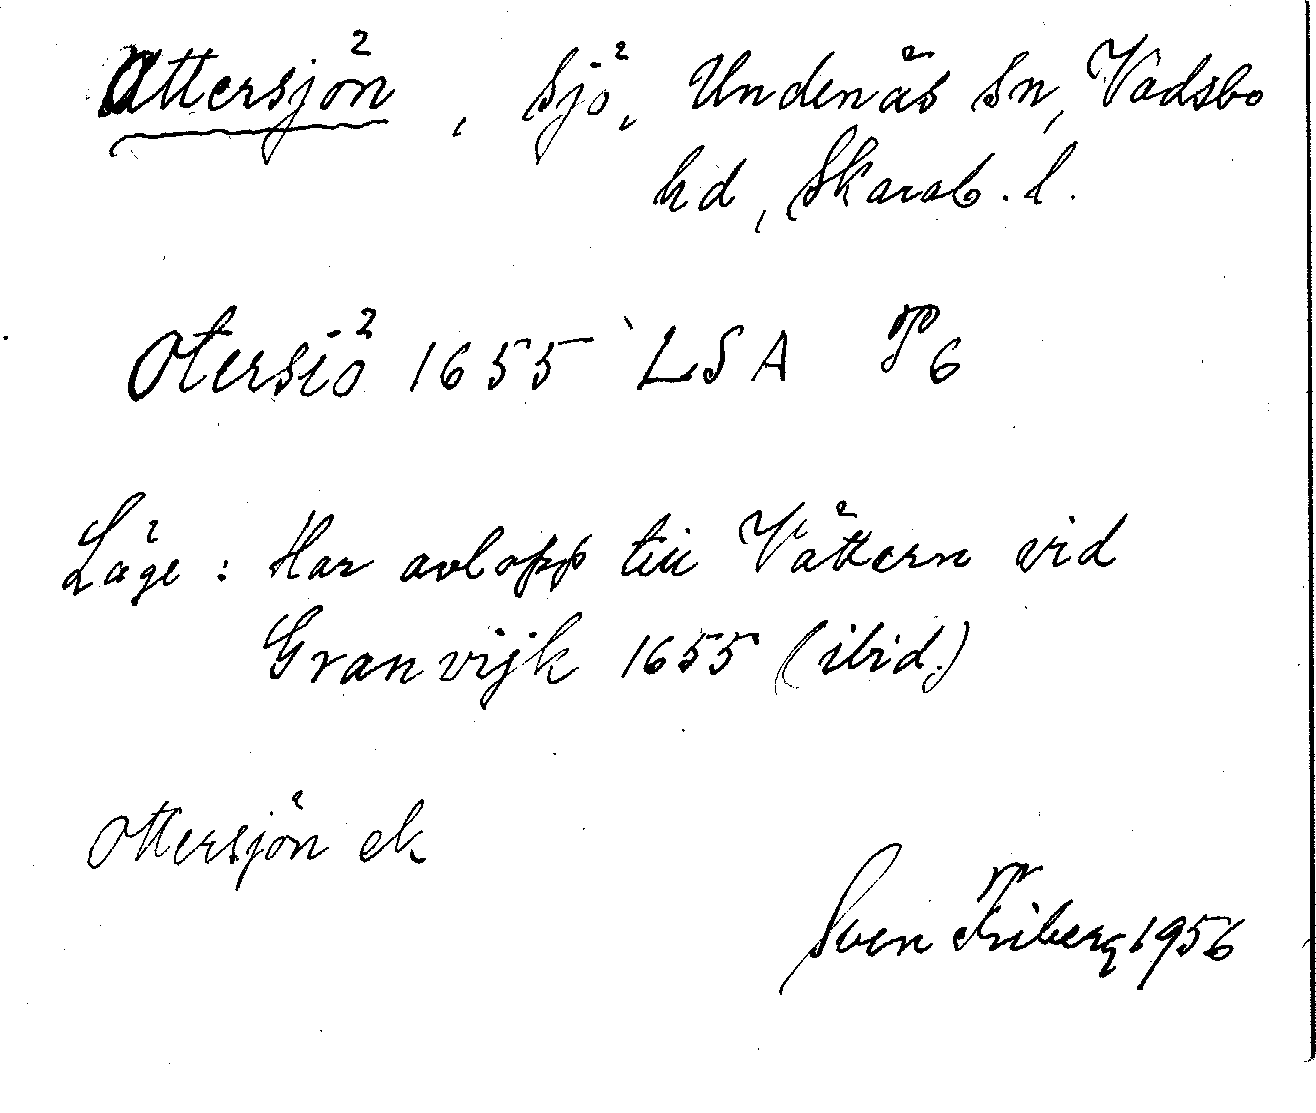 Attersjön, sjö, Undenäs sn, Vadsbo
hd, Skarab. l.
Otersiö 1655 LSA P6
Läge: Har avlopp till Vättern vid
Granvijk 1655 (ibid.)
Ottersjön ek
Sven Friberg 1956